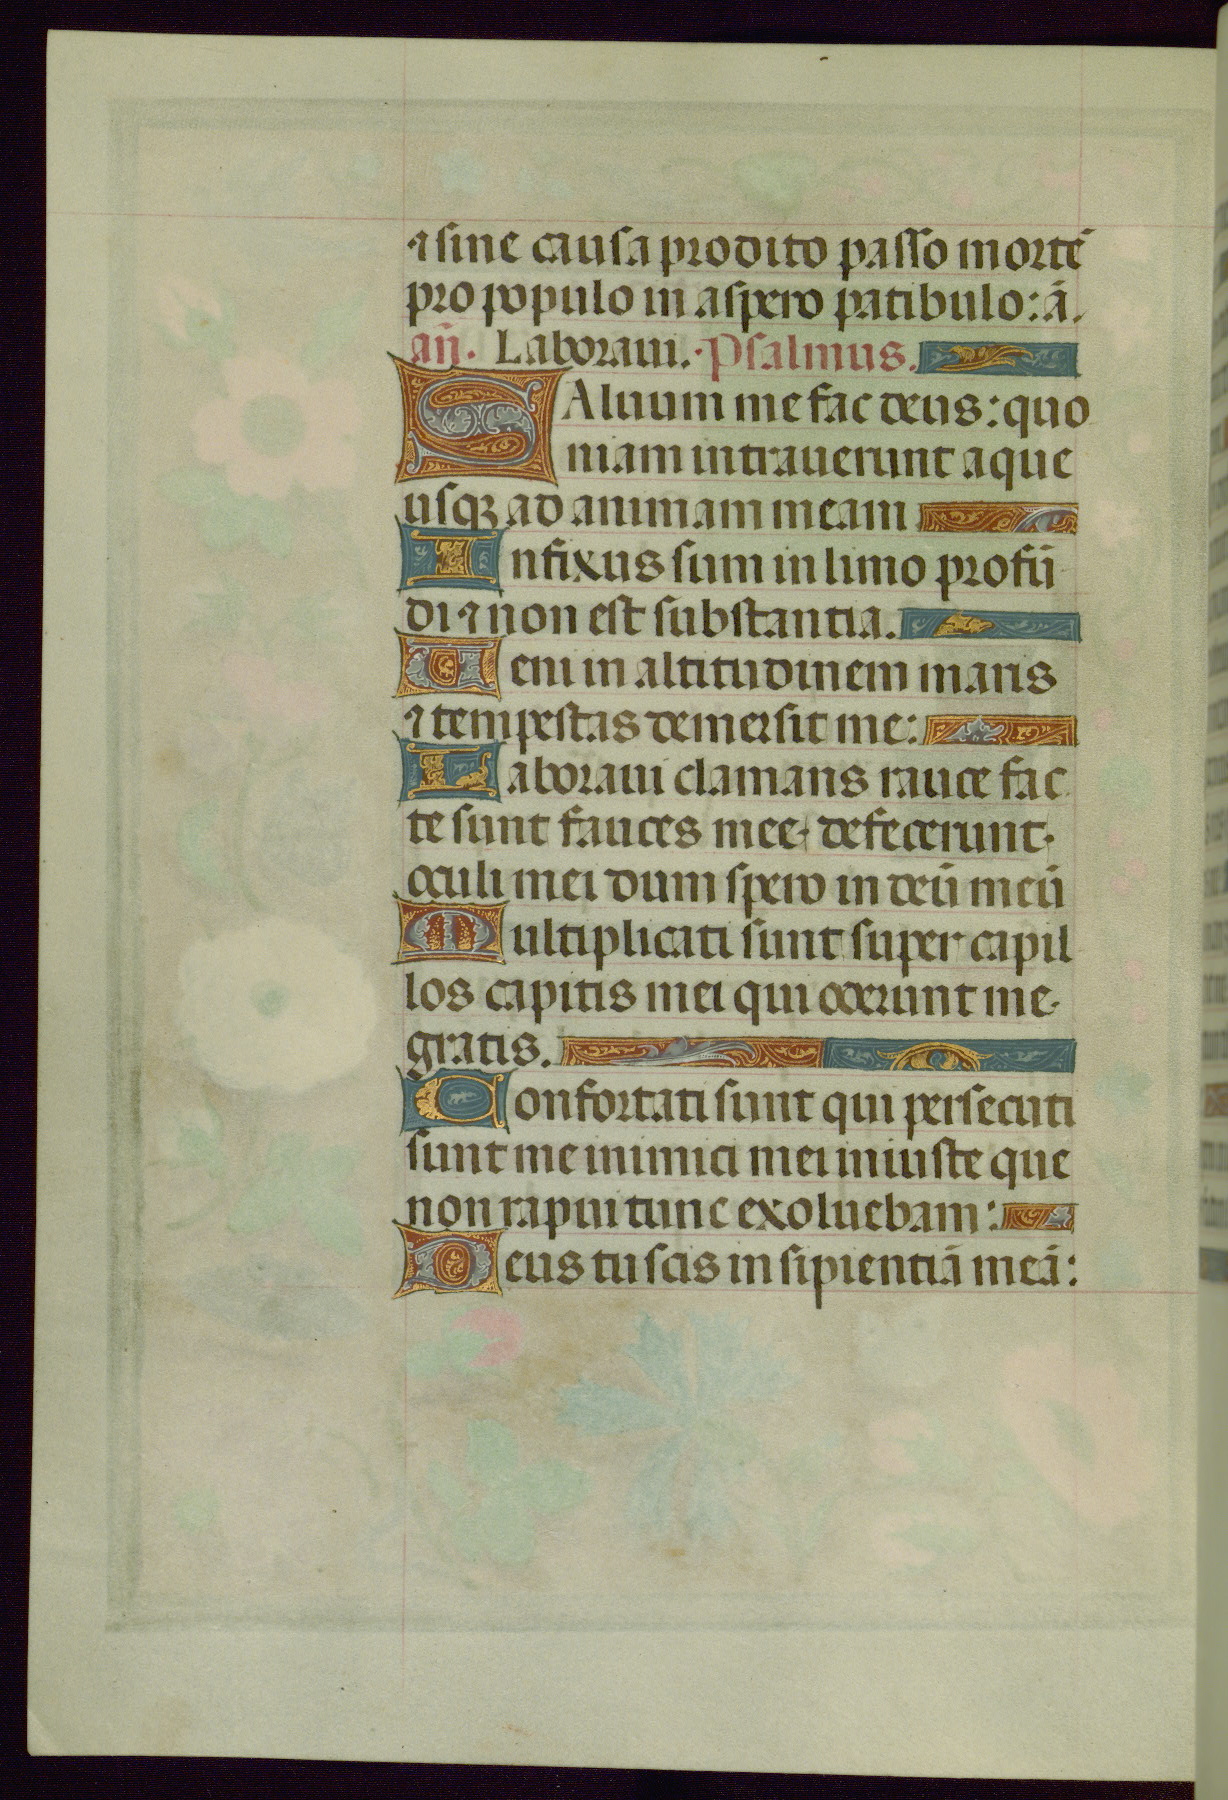 ⁊ sine causa prodito passo mortē
pro populo in aspero patibulo: ā.
añ. Laboraui. Psalmus.
SAluum me fac deus: quo
niam intrauerunt aque
usqꝫ ad animam meam
Infixus sum in limo profū
di ⁊ non est substantia.
Ueni in altitudinem maris
⁊ tempestas demersit me:
Laboraui clamans rauce fac
te sunt fauces mee. defecerunt.
oculi mei dum spero in deū meū
Multiplicati sunt super capil
los capitis mei qui oderunt me.
gratis.
Confortati sunt qui persecuti
sunt me inimici mei iniuste que
non rapui tunc exoluebam:
Deus tu scis insipientiā meā: